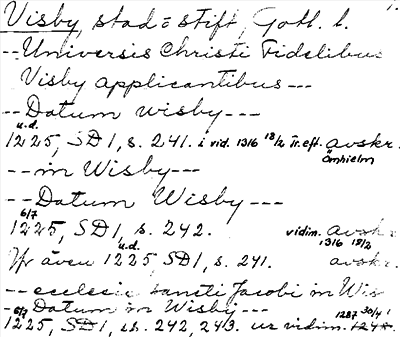 Visby, stad o stift, Gotl. l.
--Universis Christi Fidelibus
Visby applicantibus---
--Datum wisby---
u.d.
1225, SD1, s. 241. i vid. 1316 18/2 Tr. eft. avskr.
Örnhielm
--in Wisby---
--Datum Wisby---
6/7
1225, SD1, s. 242. vidim. avskr.
1316 18/2
u.d.
Jfr även 1225 SD1, s. 241. avskr.
--ecclesie sancti Jacobi in Wis
--Datum in Wisby---
6/7 1287 30/4
1225, SD1, s. 242, 243. ur vidim.